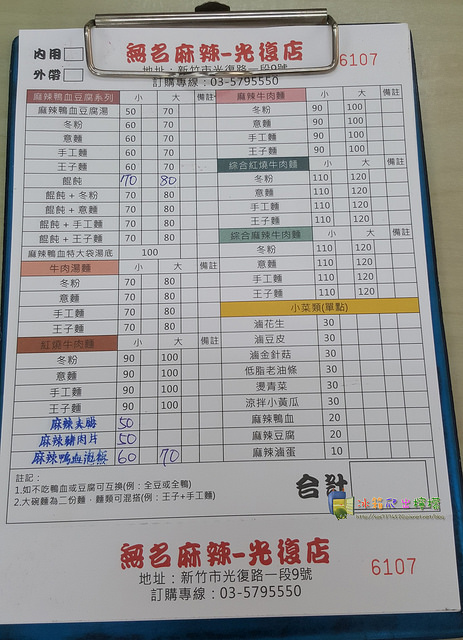 內用
外帶
無名麻辣-光復店
地址：新竹市光復路一段9號
訂購專線：03-5795550
6107
麻辣鴨血豆腐系列 小 大 備註
麻辣鴨血豆腐湯 50 70
冬粉 60 70
意麵 60 70
手工麵 60 70
王子麵 60 70
餛飩 70 80
餛飩+冬粉 70 80
餛飩+意麵 70 80
餛飩+手工麵 70 80
餛飩+王子麵 70 80
麻辣鴨血特大袋湯底 100
牛肉湯麵 小 大 備註
冬粉 70 80
意麵 70 80
手工麵 70 80
王子麵 70 80
紅燒牛肉麵 小 大 備註
冬粉 90 100
意麵 90 100
手工麵 90 100
王子麵 90 100
麻辣大腸 50
麻辣豬肉片 50
麻辣鴨血泡飯 60 70
麻辣牛肉麵 小 大 備註
冬粉 90 100
意麵 90 100
手工麵 90 100
王子麵 90 100
綜合紅燒牛肉麵 小 大 備註
冬粉 110 120
意麵 110 120
手工麵 110 120
王子麵 110 120
綜合麻辣牛肉麵 小 大 備註
冬粉 110 120
意麵 110 120
手工麵 110 120
王子麵 110 120
小菜類(單點)
滷花生 30
滷豆皮 30
滷金針菇 30
低脂老油條 30
燙青菜 30
涼拌小黃瓜 30
麻辣鴨血 20
麻辣豆腐 20
麻辣滷蛋 10
註記：
1.如不吃鴨血或豆腐可互換(例：全豆或全鴨)
2.大碗麵為二份麵，麵類可混搭(例：王子+手工麵)
合計
無名麻辣-光復店
地址：新竹市光復路一段9號
訂購專線：03-5795550
6107